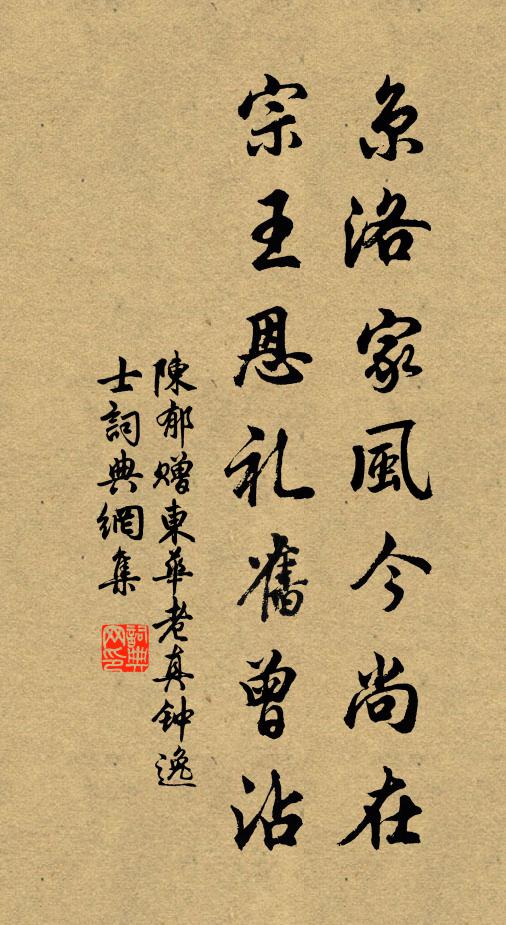 京洛家風今尚在
宗王恩礼舊曾沾
陳郁赠東華老真钟逸
士詞典網集
詞典
网印